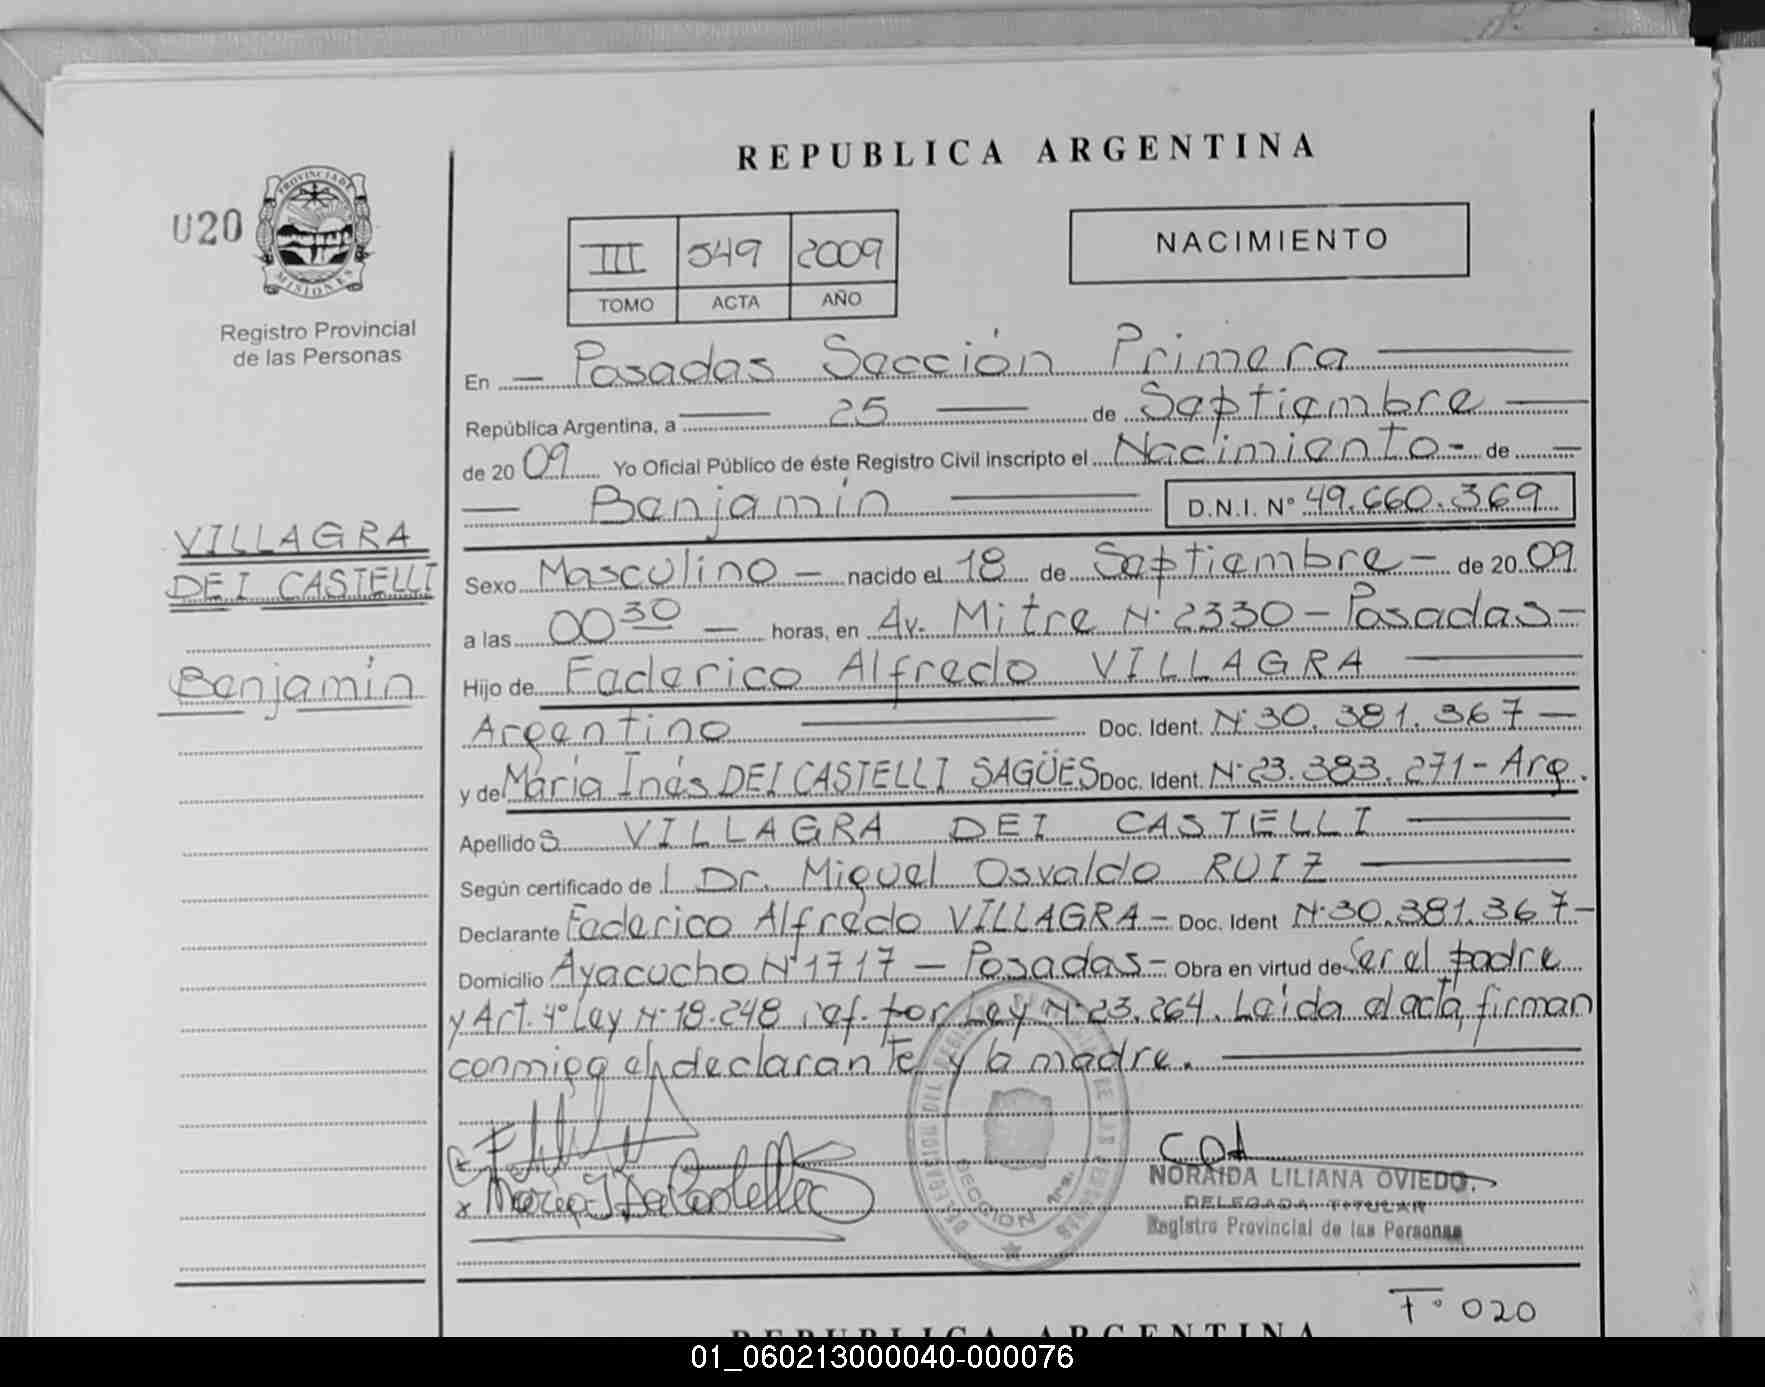 REPUBLICA ARGENTINA
020
PROVINCIA DE
MISIONES
Registro Provincial
de las Personas
III 549 2009
TOMO ACTA AÑO
NACIMIENTO
En — Posadas Sección Primera —
República Argentina, a — 25 — de Septiembre —
de 20 09 Yo Oficial Público de éste Registro Civil inscripto el Nacimiento - de —
— Benjamín — D.N.I. N° 49.660.369
VILLAGRA
DEI CASTELLI
Benjamín
Sexo Masculino — nacido el 18 de Septiembre — de 20 09
a las 00 30 — horas, en Av. Mitre N° 2330 - Posadas -
Hijo de Federico Alfredo VILLAGRA —
Argentino — Doc. Ident. N° 30.381.367 —
y de María Inés DEI CASTELLI SAGÜES Doc. Ident. N° 23.383.271 - Arg.
Apellido S VILLAGRA DEI CASTELLI —
Según certificado de l Dr. Miguel Osvaldo RUIZ —
Declarante Federico Alfredo VILLAGRA - Doc. Ident N° 30.381.367 -
Domicilio Ayacucho N° 1717 - Posadas - Obra en virtud de Ser el padre
y Art. 4° Ley N° 18.248 ref. por Ley N° 23.264. Leida el acta, firman
conmigo el declarante y la madre. —
SECCION 1ra.
NORAIDA LILIANA OVIEDO
DELEGADA TITULAR
Registro Provincial de las Personas
F° 020
REPUBLICA ARGENTINA
01_060213000040-000076